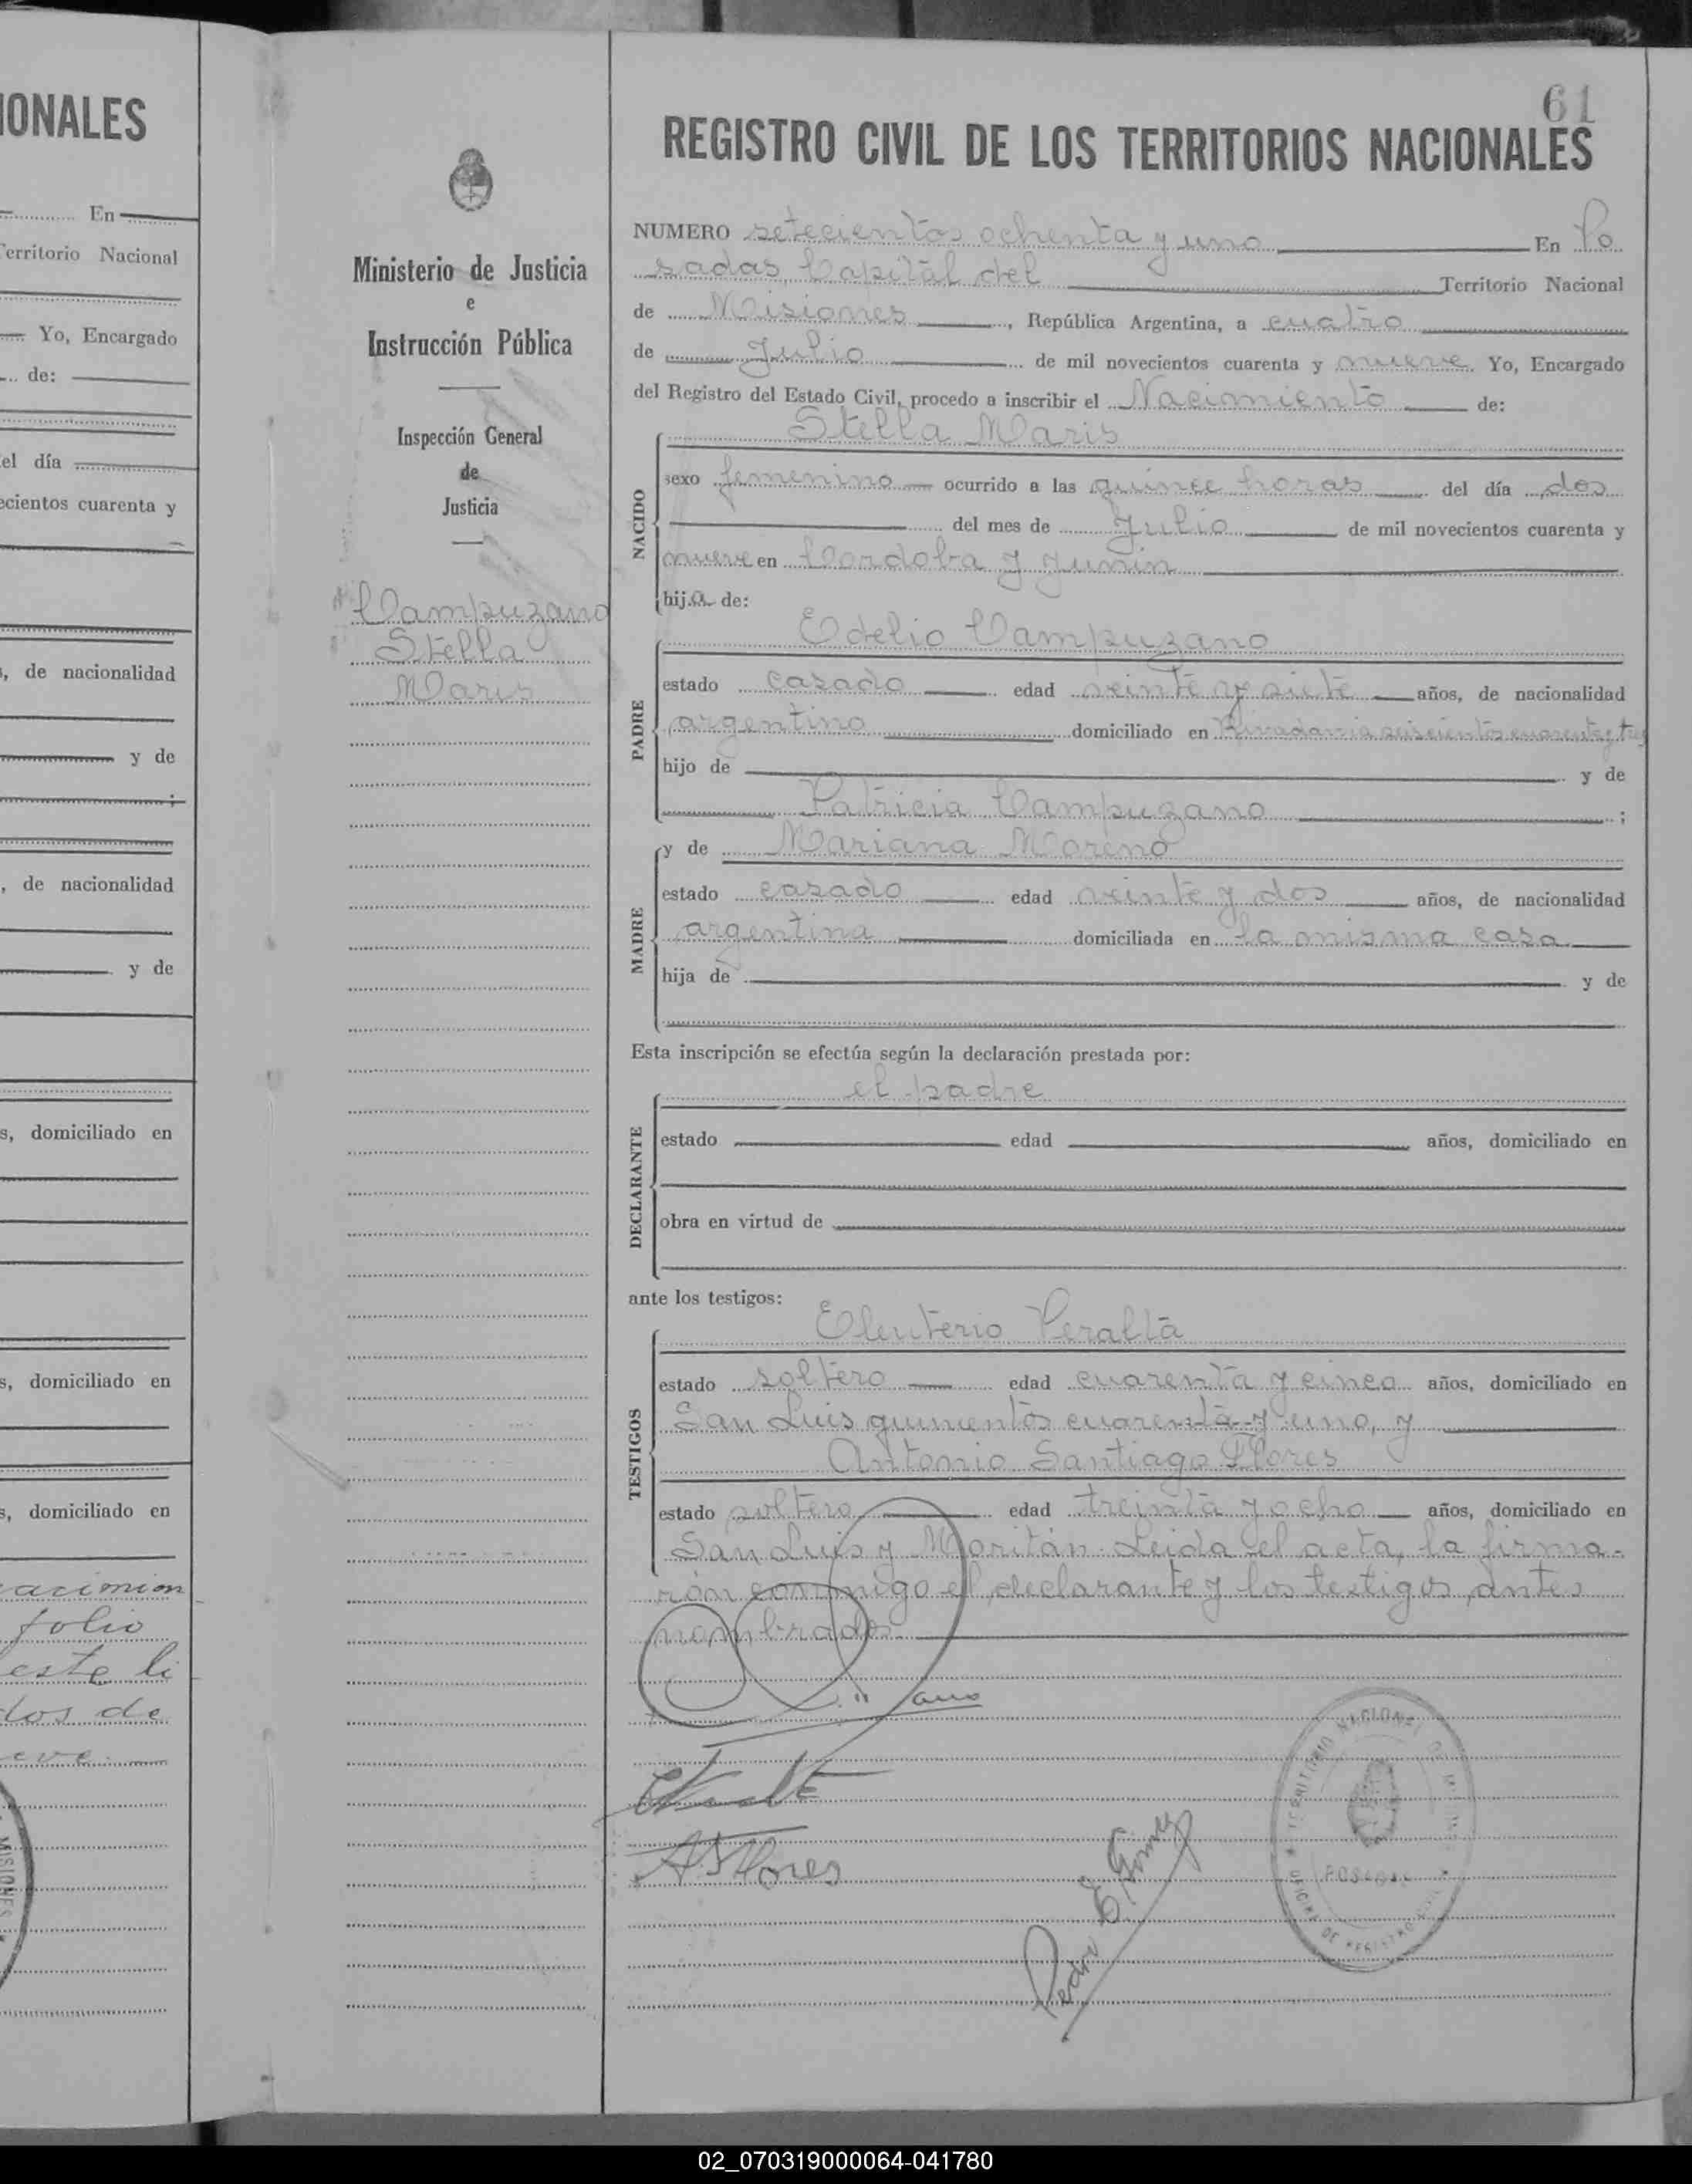 IONALES
En
Territorio Nacional
Yo, Encargado
de:
el día
ecientos cuarenta y
, de nacionalidad
y de
;
, de nacionalidad
y de
s, domiciliado en
s, domiciliado en
s, domiciliado en
acimien
folio
este li
dos de
eve
MISIONES
Ministerio de Justicia
e
Instrucción Pública
Inspección General
de
Justicia
Campuzano
Stella
Maris
61
REGISTRO CIVIL DE LOS TERRITORIOS NACIONALES
NUMERO setecientos ochenta y uno En Po
sadas, Capital del Territorio Nacional
de Misiones, República Argentina, a cuatro
de Julio de mil novecientos cuarenta y nueve Yo, Encargado
del Registro del Estado Civil, procedo a inscribir el Nacimiento de:
Stella Maris
NACIDO
sexo femenino ocurrido a las quince horas del día dos
del mes de Julio de mil novecientos cuarenta y
nueve en Cordoba y Junin
hija de:
Edelio Campuzano
PADRE
estado casado edad veinte y siete años, de nacionalidad
argentino domiciliado en Rivadavia seiscientos cuarenta y tres
hijo de y de
Patricia Campuzano ;
y de Mariana Moreno
MADRE
estado casado edad veinte y dos años, de nacionalidad
argentina domiciliada en la misma casa
hija de y de
Esta inscripción se efectúa según la declaración prestada por:
el padre
DECLARANTE
estado edad años, domiciliado en
obra en virtud de
ante los testigos:
Eleuterio Peralta
TESTIGOS
estado soltero edad cuarenta y cinco años, domiciliado en
San Luis quinientos cuarenta y uno, y
Antonio Santiago Flores
estado soltero edad treinta y ocho años, domiciliado en
San Luis y Moritán. Leida el acta, la firma-
rón conmigo el declarante y los testigos antes
nombrados.
A S Flores
Pedro E. Gomez
TERRITORIO NACIONAL DE MISIONES
POSADAS
OFICINA DE REGISTRO CIVIL
02_070319000064-041780